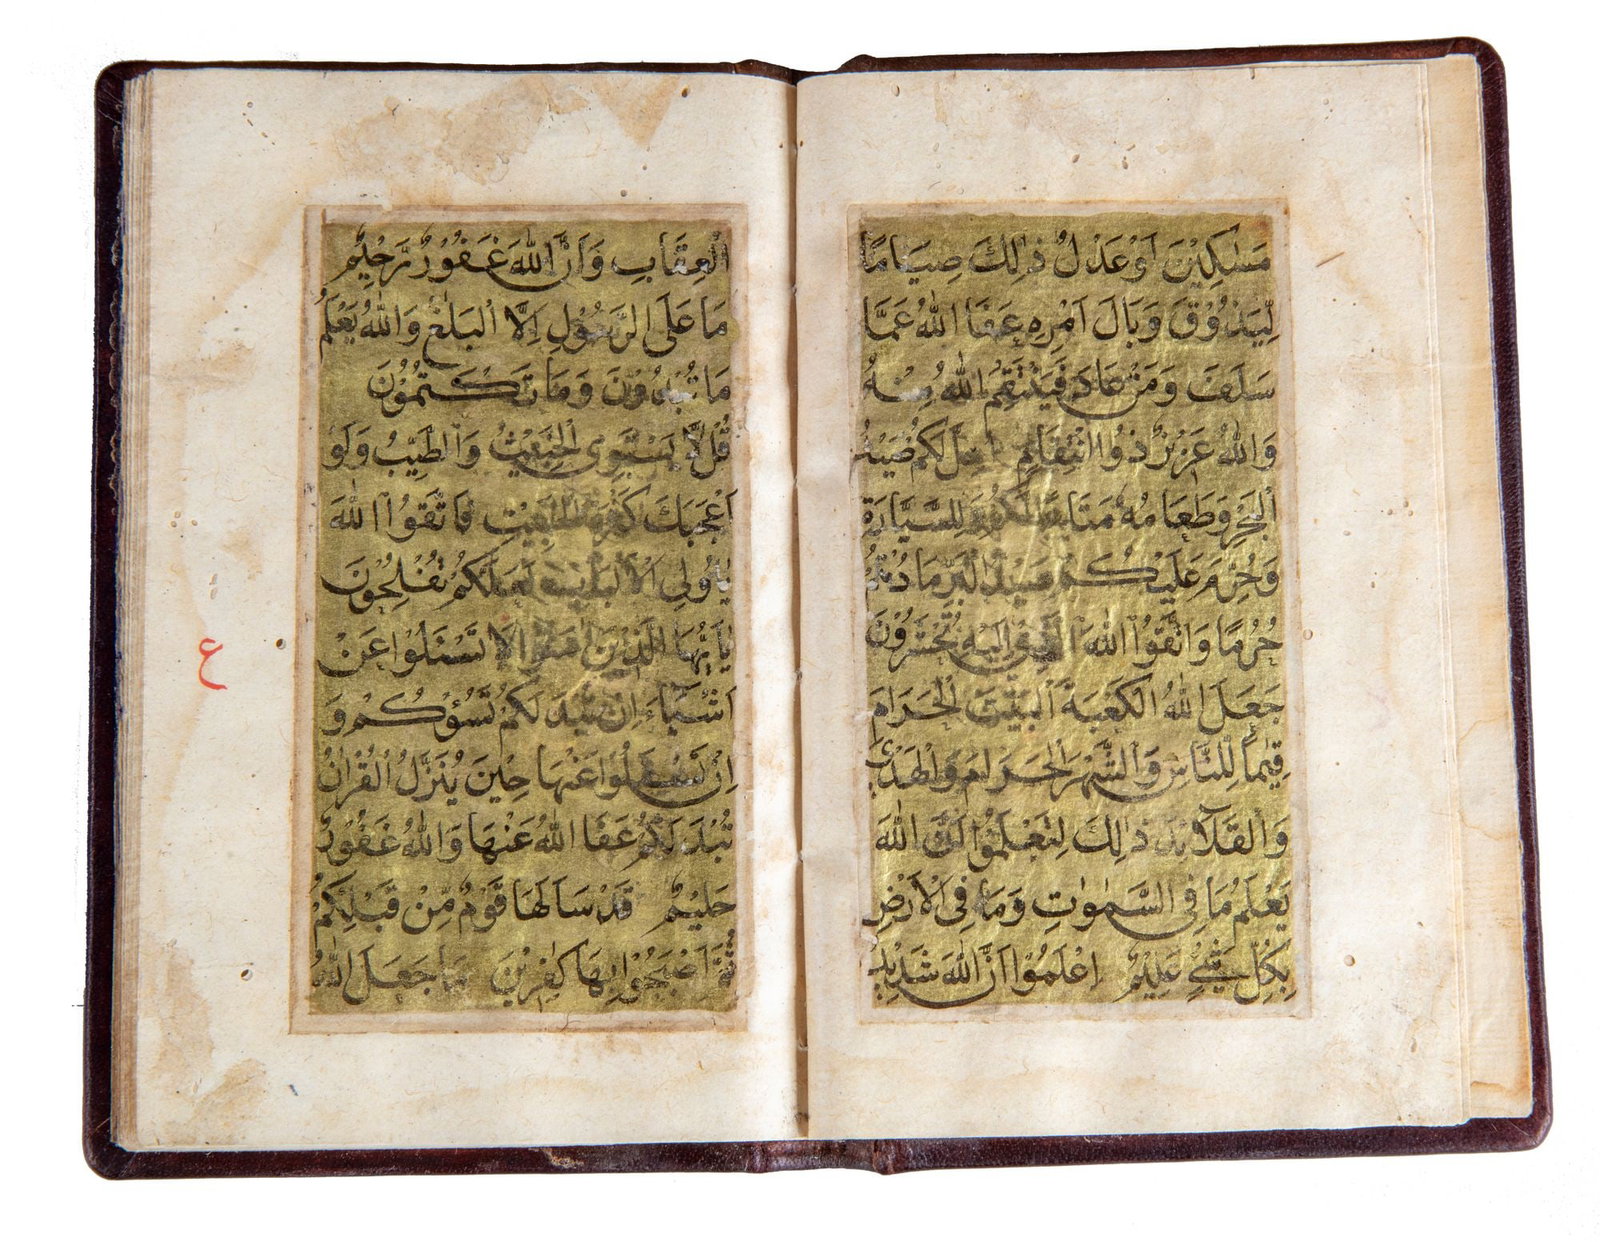 مَسٰكِيْنَ اَوْ عَدْلُ ذٰلِكَ صِيَامًا
لِّيَذُوْقَ وَبَالَ اَمْرِهٖ عَفَا اللّٰهُ عَمَّا
سَلَفَ وَمَنْ عَادَ فَيَنْتَقِمُ اللّٰهُ مِنْهُ
وَاللّٰهُ عَزِيْزٌ ذُوا انْتِقَامٍ احل لَكُمْ صَيْدُ
الْبَحْرِ وَطَعَامُهٗ مَتَاعًا لَّكُمْ وَلِلسَّيَّارَةِ
وَحُرِّمَ عَلَيْكُمْ صَيْدُ الْبَرِّ مَا دُمْتُمْ
حُرُمًا وَاتَّقُوا اللّٰهَ الَّذِيْ اِلَيْهِ تُحْشَرُوْنَ
جَعَلَ اللّٰهُ الْكَعْبَةَ الْبَيْتَ الْحَرَامَ
قِيٰمًا لِّلنَّاسِ وَالشَّهْرَ الْحَرَامَ وَالْهَدْىَ
وَالْقَلَآئِدَ ذٰلِكَ لِتَعْلَمُوْا اَنَّ اللّٰهَ
يَعْلَمُ مَا فِى السَّمٰوٰتِ وَمَا فِى الْاَرْضِ
بِكُلِّ شَيْءٍ عَلِيْمٌ اِعْلَمُوْا اَنَّ اللّٰهَ شَدِيْدُ
الْعِقَابِ وَاَنَّ اللّٰهَ غَفُوْرٌ رَّحِيْمٌ
مَا عَلَى الرَّسُوْلِ اِلَّا الْبَلٰغُ وَاللّٰهُ يَعْلَمُ
مَا تُبْدُوْنَ وَمَا تَكْتُمُوْنَ
قُلْ لَّا يَسْتَوِى الْخَبِيْثُ وَالطَّيِّبُ وَلَوْ
اَعْجَبَكَ كَثْرَةُ الْخَبِيْثِ فَاتَّقُوا اللّٰهَ
يٰاُولِى الْاَلْبَابِ لَعَلَّكُمْ تُفْلِحُوْنَ
يٰاَيُّهَا الَّذِيْنَ اٰمَنُوْا لَا تَسْئَلُوْا عَنْ
اَشْيَآءَ اِنْ تُبْدَ لَكُمْ تَسُؤْكُمْ وَ
اِنْ تَسْئَلُوْا عَنْهَا حِيْنَ يُنَزَّلُ الْقُرْاٰنُ
تُبْدَ لَكُمْ عَفَا اللّٰهُ عَنْهَا وَاللّٰهُ غَفُوْرٌ
حَلِيْمٌ قَدْ سَاَلَهَا قَوْمٌ مِّنْ قَبْلِكُمْ
ثُمَّ اَصْبَحُوْا بِهَا كٰفِرِيْنَ مَا جَعَلَ اللّٰهُ
ع